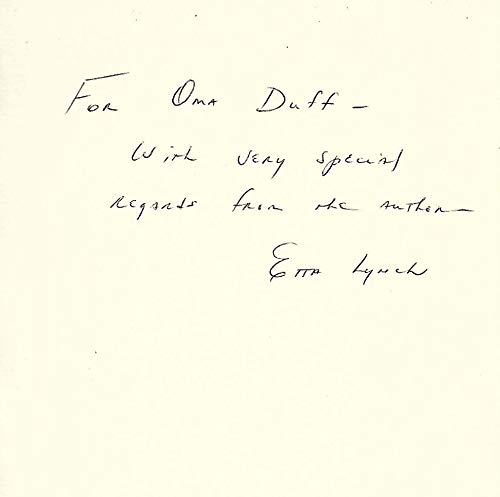 For Oma Duff –
With very special
regards from the author –
Etta Lynch